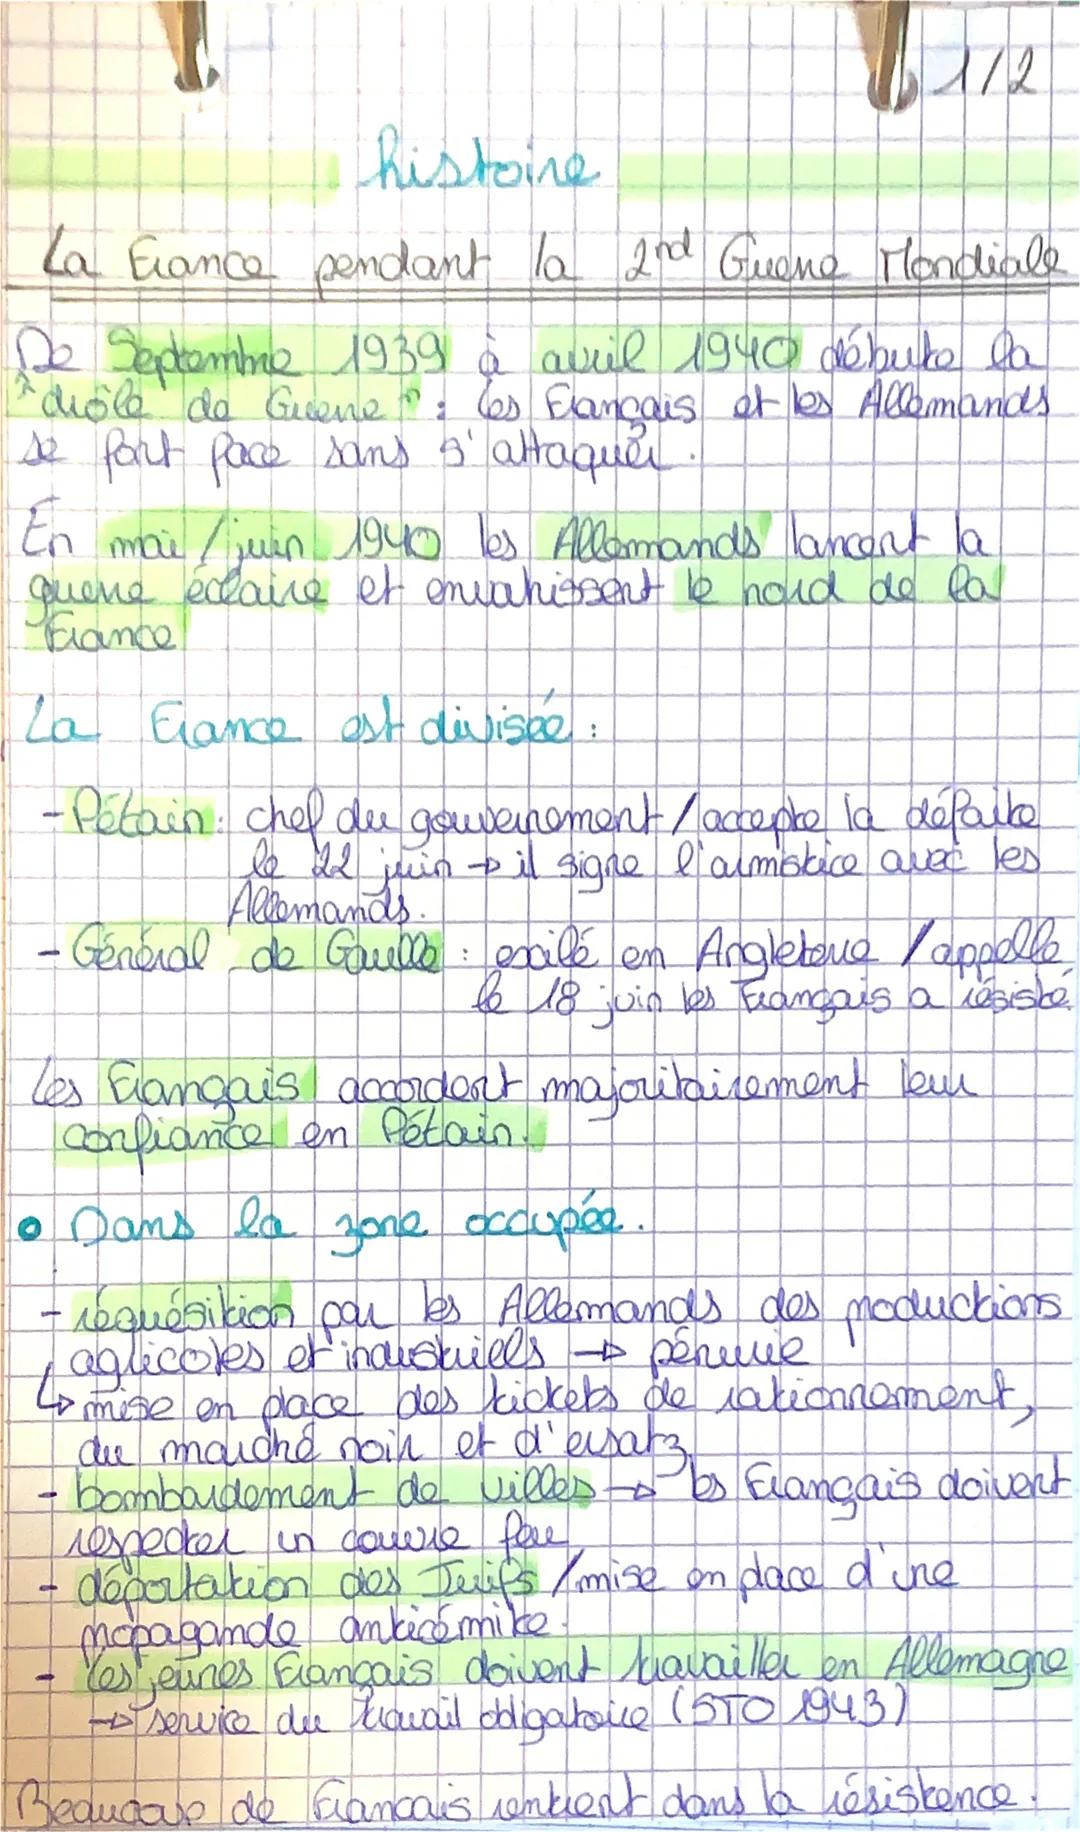 1/2
histoire
La France pendant la 2nd Guerre Mondiale
De Septembre 1939 à avril 1940 débute la
"drôle de Guerre" : les Français et les Allemands
se font face sans s'attaquer.
En mai/juin 1940 les Allemands lancent la
guerre éclaire et envahissent le nord de la
France
La France est divisée :
- Pétain : chef du gouvernement / accepte la défaite
le 22 juin → il signe l'armistice avec les
Allemands.
- Général de Gaulle : exilé en Angleterre / appelle
le 18 juin les Français a résisté
Les Français accordent majoritairement leur
confiance en Pétain.
• Dans la zone occupée.
- réquésition par les Allemands des productions
agricoles et industriells → pénurie
↳ mise en place des tickets de rationnement,
du marché noir et d'ersatz
- bombardement de villes → les Français doivent
respecter un couvre feu
- déportation des Juifs / mise en place d'une
propagande anticémite.
- les jeunes Français doivent travailler en Allemagne
→ service du travail obligatoire (STO 1943)
Beaucoup de Francais rentrent dans la résistence.